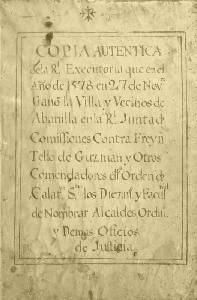 COPIA AUTENTICA
de la Rl. Executoria que en el
Año de 1578 en 27 de Nove.
Ganó la Villa y Vecinos de
Abanilla en la Rl. Junta de
Comissiones Contra Frey Nn.
Tello de Guzman y Otros
Comendadores del Orden de
Calatr. Sre. los Diezms. y Facul.
de Nombrar Alcaldes Ordins.
y Demas Oficios
de Justicia